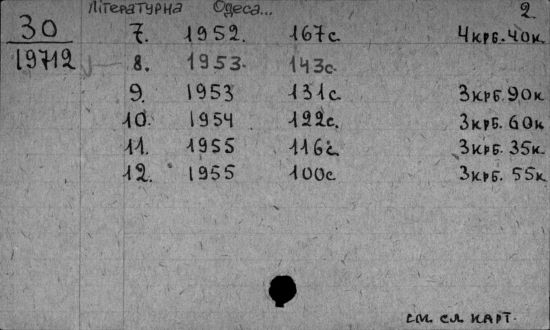 Літературна Одеса... 2
30 7. 1952. 167с. 4крб. 40к
19712 8. 1953. 143с.
9. 1953 131с. 3крб. 90к
10. 1954 122с. 3крб. 60к
11. 1955 116с. 3крб. 35к
12. 1955 100с 3крб. 55к
см. сл. карт.